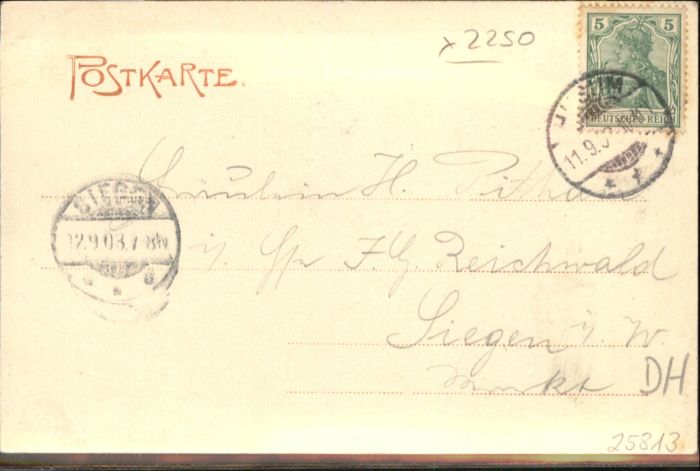 POSTKARTE.
x 2250
5 5
DEUTSCHES REICH
11.9.
SIEGEN
12.9.03.7-8N
Fräulein H.
F. G. Reichwald
Siegen i. W.
Markt
DH
25813